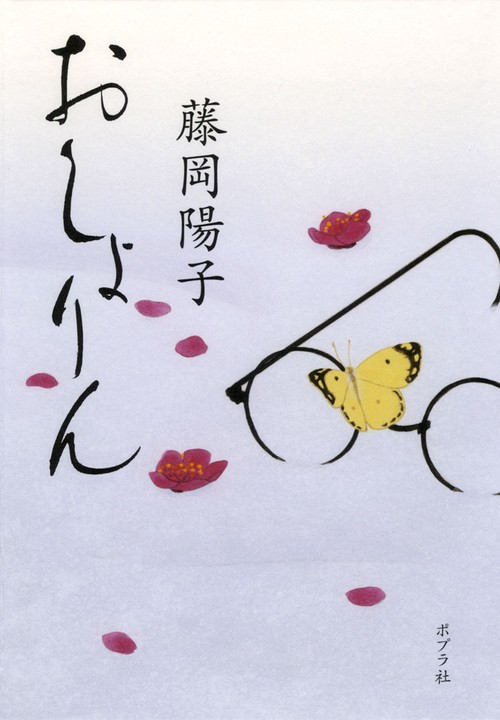 おしょりん
藤岡陽子
ポプラ社